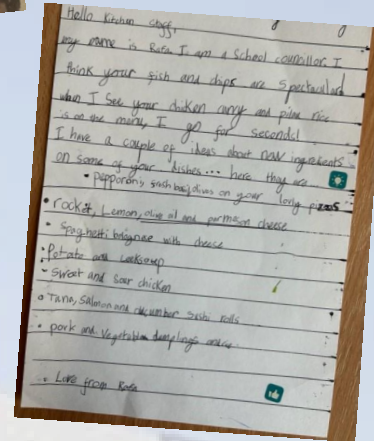 Hello Kitchen staff,
my name is Rosa I am a School councillor. I
think your fish and chips are Spectacular!
when I See your chicken curry and pilau rice
is on the menu, I go for seconds!
I have a couple of ideas about new ingredients
on some of your dishes... here they are
• pepperoni, fresh basil, olives on your lovly pizzas
• rocket, Lemon, olive oil and parmesan cheese
• Spaghetti bolognese with cheese
• Potato and soup
• Sweat and sour chicken
• Tuna, Salmon and cucumber Sushi rolls
• pork and Vegetable dumplings
• Love from Rosa